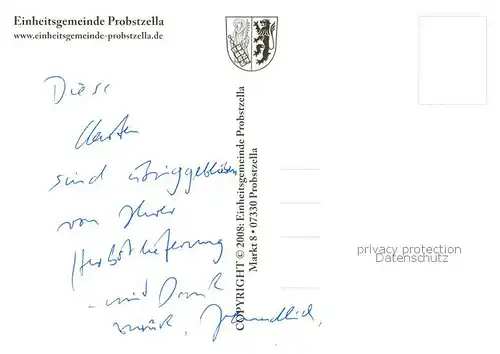 Einheitsgemeinde Probstzella
www.einheitsgemeinde-probstzella.de
Diese
Karten
sind übriggeblieben
von Ihrer
Herbstlieferung
- mit Dank
zurück,
COPYRIGHT © 2008: Einheitsgemeinde Probstzella
Markt 8 • 07330 Probstzella
privacy protection
Datenschutz